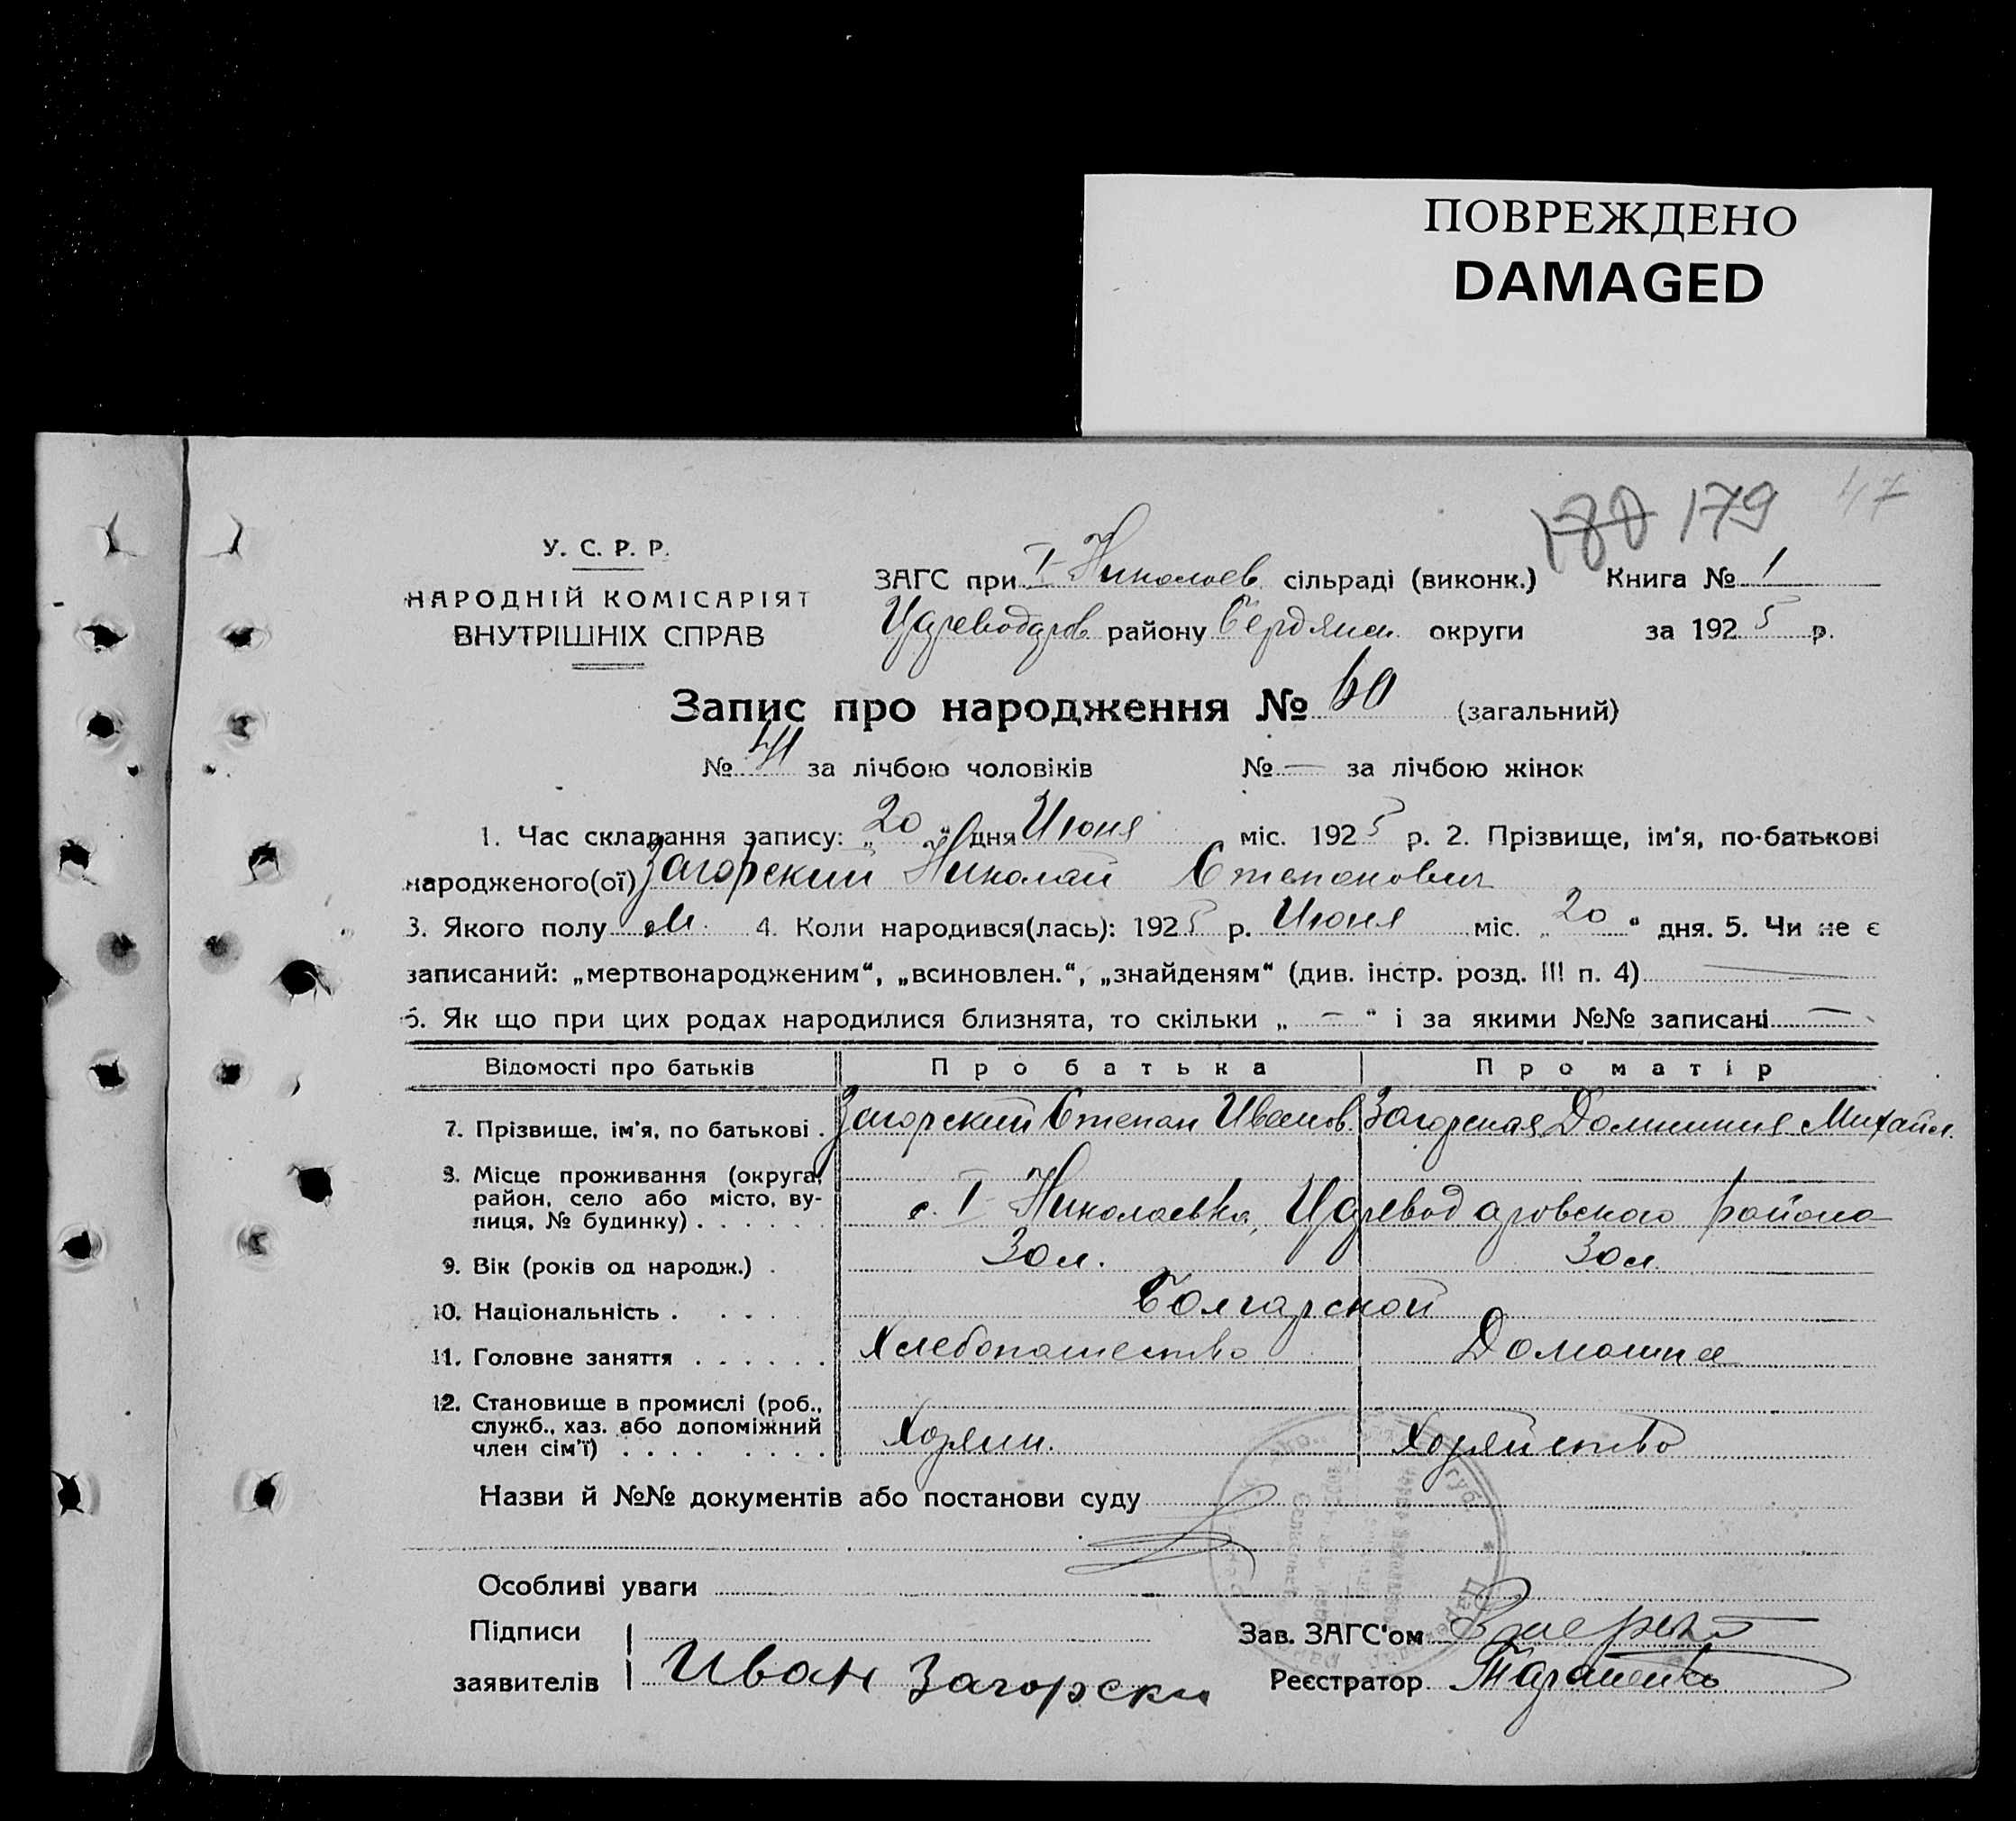 ПОВРЕЖДЕНО
DAMAGED
180 179 47
У. С. Р. Р.
НАРОДНІЙ КОМІСАРІЯТ
ВНУТРІШНІХ СПРАВ
ЗАГС при I Николаев сільраді (виконк.) Книга № 1
Цареводаров району Бердянск округи за 1925 р.
Запис про народження № 60 (загальний)
№ 41 за лічбою чоловіків № — за лічбою жінок
1. Час складання запису: „20" дня Июня міс. 1925 р. 2. Прізвище, ім'я, по-батькові
народженого(ої) Загорский Николай Степанович
3. Якого полу М. 4. Коли народився(лась): 1925 р. Июня міс. „20" дня. 5. Чи не є
записаний: „мертвонародженим", „всиновлен.", „знайденям" (див. інстр. розд. III п. 4) —
6. Як що при цих родах народилися близнята, то скільки „ — " і за якими №№ записані —
Відомості про батьків Про батька Про матір
7. Прізвище, ім'я, по батькові . Загорский Степан Иванов. Загорская Домникия Михайл.
8. Місце проживання (округа,
район, село або місто, ву-
лиця, № будинку) . . . . . . с. I Николаевка, Цареводаровского района
9. Вік (років од народж.) . 30 л. 30 л.
10. Національність . . . . Болгарской
11. Головне заняття . . . . . . Хлебопашество Домашня
12. Становище в промислі (роб.,
служб., хаз. або допоміжний
член сім'ї) . . . . . . . . Хозяин. Хозяйство
Назви й №№ документів або постанови суду
Особливі уваги
Підписи
заявителів Иван Загорски
Зав. ЗАГС'ом
Реєстратор